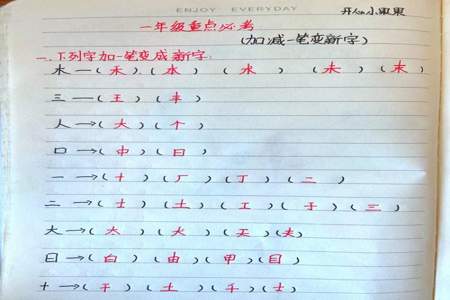 ENJOY EVERYDAY
开心小果果
一年级重点必考
(加减一笔变新字)
一、下列字加一笔变成新字:
木—(禾)(本)(水)(未)(末)
三—(王)(丰)
人→(大)(个)
口→(中)(日)
一→(十)(厂)(丁)(二)
二→(士)(土)(工)(于)(三)
大→(太)(犬)(天)(夫)
日→(白)(由)(甲)(目)
十→(干)(土)(千)(士)